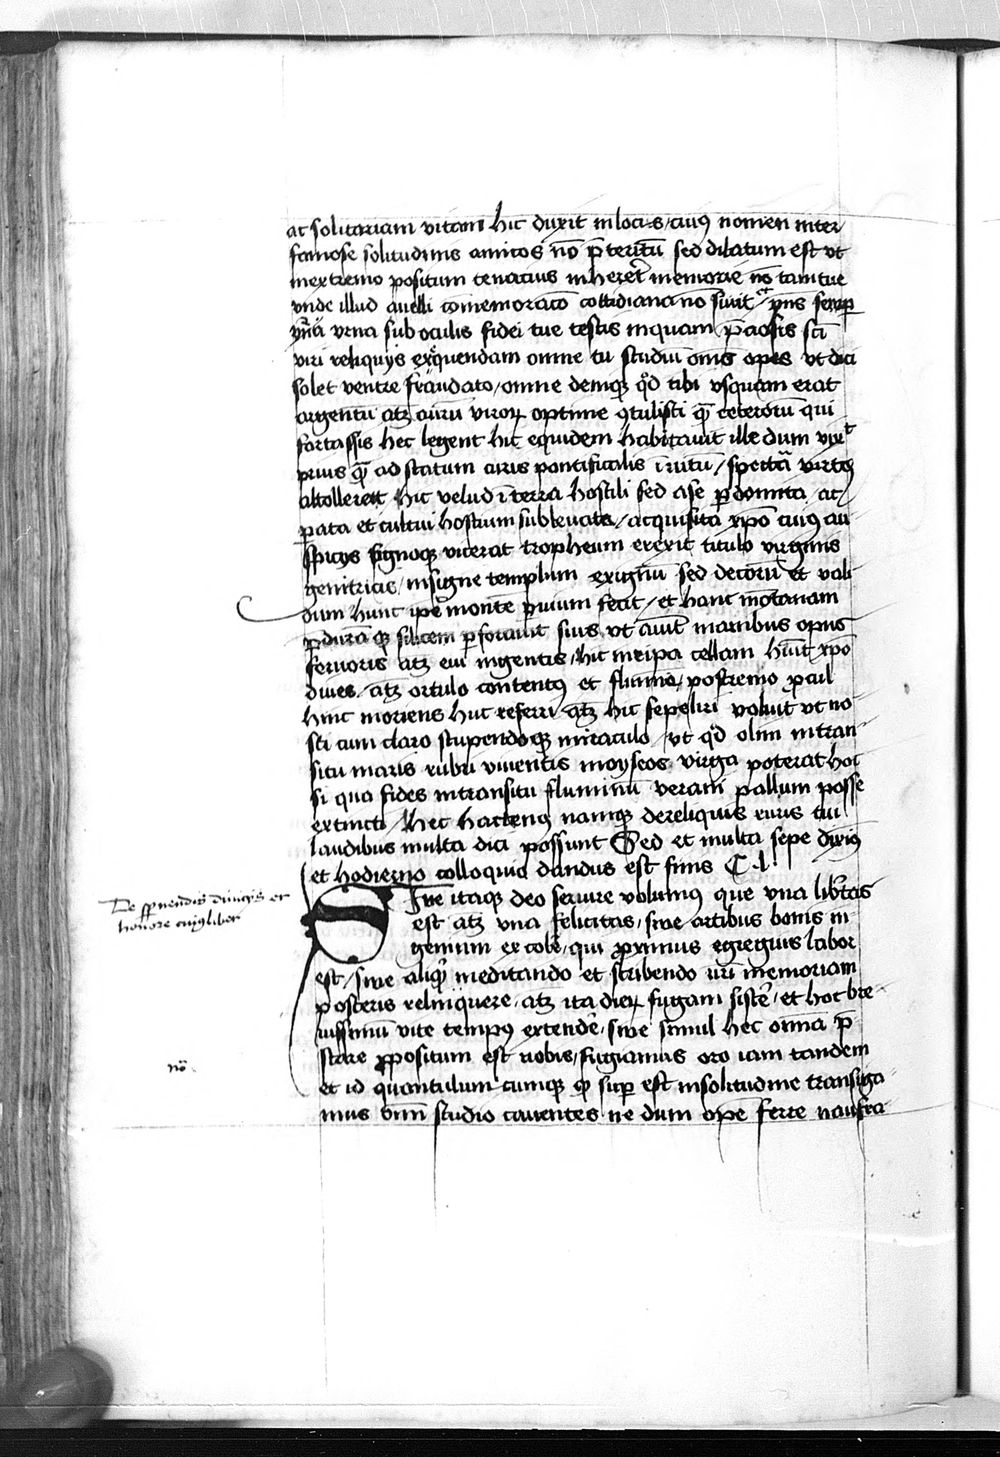 ac solitariam vitam hic duxit in locis, cuiꝰ nomen inter
famose solitudinis amicos nō p̄teritū sed dilatum est vt
in extremo positum tenacius inhereret memorie nō tam tue
vnde illud auelli cōmemoracō cottidiana nō sinit pn̄s semp
vrna sub oculis fidei tue testis inquam p̄ciosis scī
viri reliquijs exq̊uendam omne tu studiū om̄s opes vt dici
solet ventre fraudato, omne demqꝫ qd̊ tibi vsquam erat
argentū atqꝫ aurū virorꝝ optime ꝯtulisti qm̄ ceterorū qui
fortassis hec legent hic equidem habitauit ille dum vixit
prius qm̄ ad statum apicis pontificalis
attolleret hic velud ī terra hostili sed a se pdomita, ac
pata et cultui hostium subleuata, acquisita xpō cuiꝰ au
spicijs signoqꝫ vicerat tropheum erexit titulo virginis
genitricis, insigne templum exiguū sed decorū et vali
dum hunc ipe montē puium fecit, et hanc
pdurā qꝫ silicem pforauit suis vt aiūt manibus opus
feruoris atqꝫ eui ingentis, hic in ripa cellam hūit xpō
diues, atqꝫ ortulo contentꝰ et flumine, postremo ꝓcul
hinc moriens huc referri atqꝫ hic sepeliri voluit vt no
sti cum claro stupendoqꝫ miraculo, vt qd̊ olim in tran
situ maris rubri viuentis moyseos virga poterat hoc
si qua fides in transitu fluminū verani pallium posse
extincti, hec hactenꝰ namqꝫ de reliquis ruris tui
laudibus multa dici possunt Sed et multa sepe dixiꝰ
et hodierno colloquio dandus est finis C l
Siue itaqꝫ deo seruire volumꝰ que vna libertas
De ppnendis diuicijs et
honore cuiꝰlibet
est atqꝫ vna felicitas, siue artibus bonis in
genium excolē, qui ꝓximus egregius labor
est, siue aliqd̊ meditando et scribendo nrī memoriam
posteris relinquere, atqꝫ ita dierꝝ fugam sistē, et hoc bre
uissimū vite tempꝰ extendē, siue simul hec omīa p̄
stare ꝓpositum est nobis, fugiamus oro iam tandem
nō
et id quantulum cumqꝫ qd̊ supest in solitudine transiga
mus om̄i studio cauentes ne dum opē ferre naufra